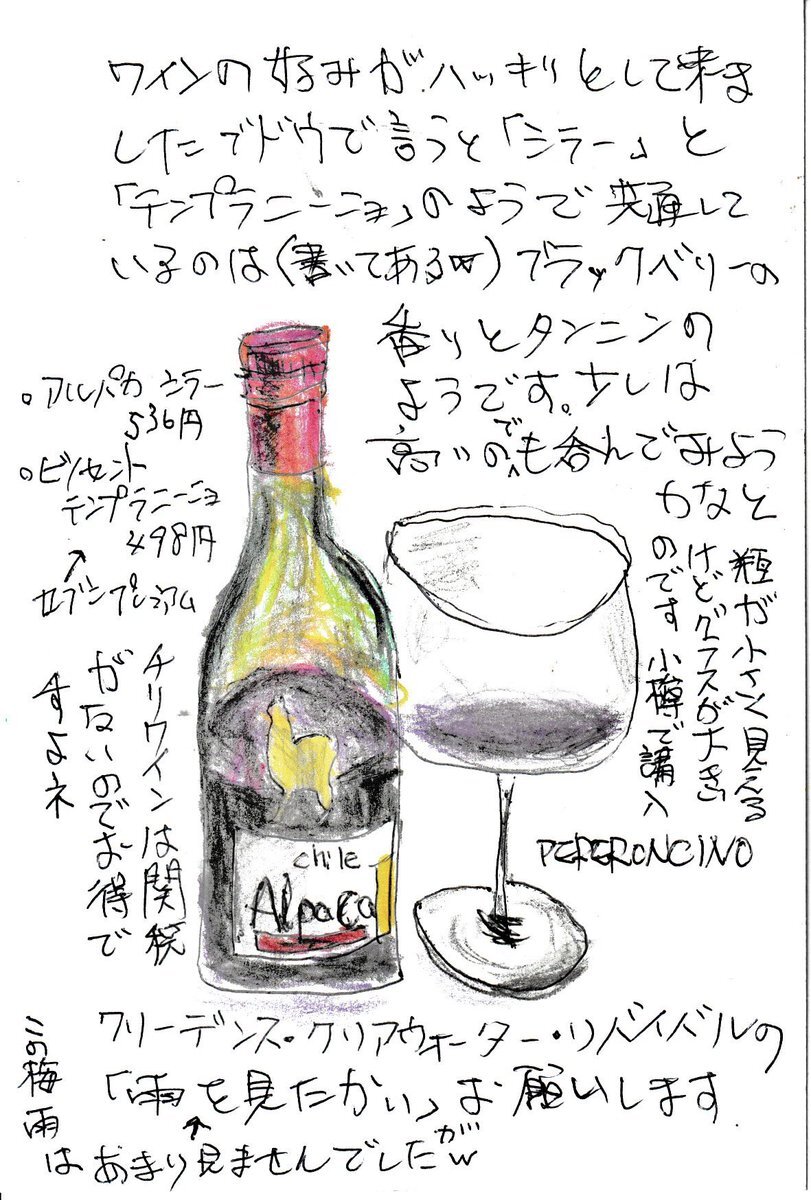 ワインの好みがハッキリとして来ま
したブドウで言うと「シラー」と
「テンプラニーニョ」のようで共通して
いるのは(書いてあるw)ブラックベリーの
香りとタンニンの
ようです。少しは
高いのでも含んでみよう
かなと
。アルパカ シラー
536円
。ビノセント
テンプラニーニョ
498円
↑
セブンプレミアム
瓶が小さく見える
けどグラスが大き
のです 小樽で講入
PEPERONCINO
チリワインは関税
がないのでお得で
すよネ
chile
Alpaca
クリーデンス・クリアウォーター・リバイバルの
「雨を見たかい」お願いします
↑
この梅雨
はあまり見ませんでしたがw